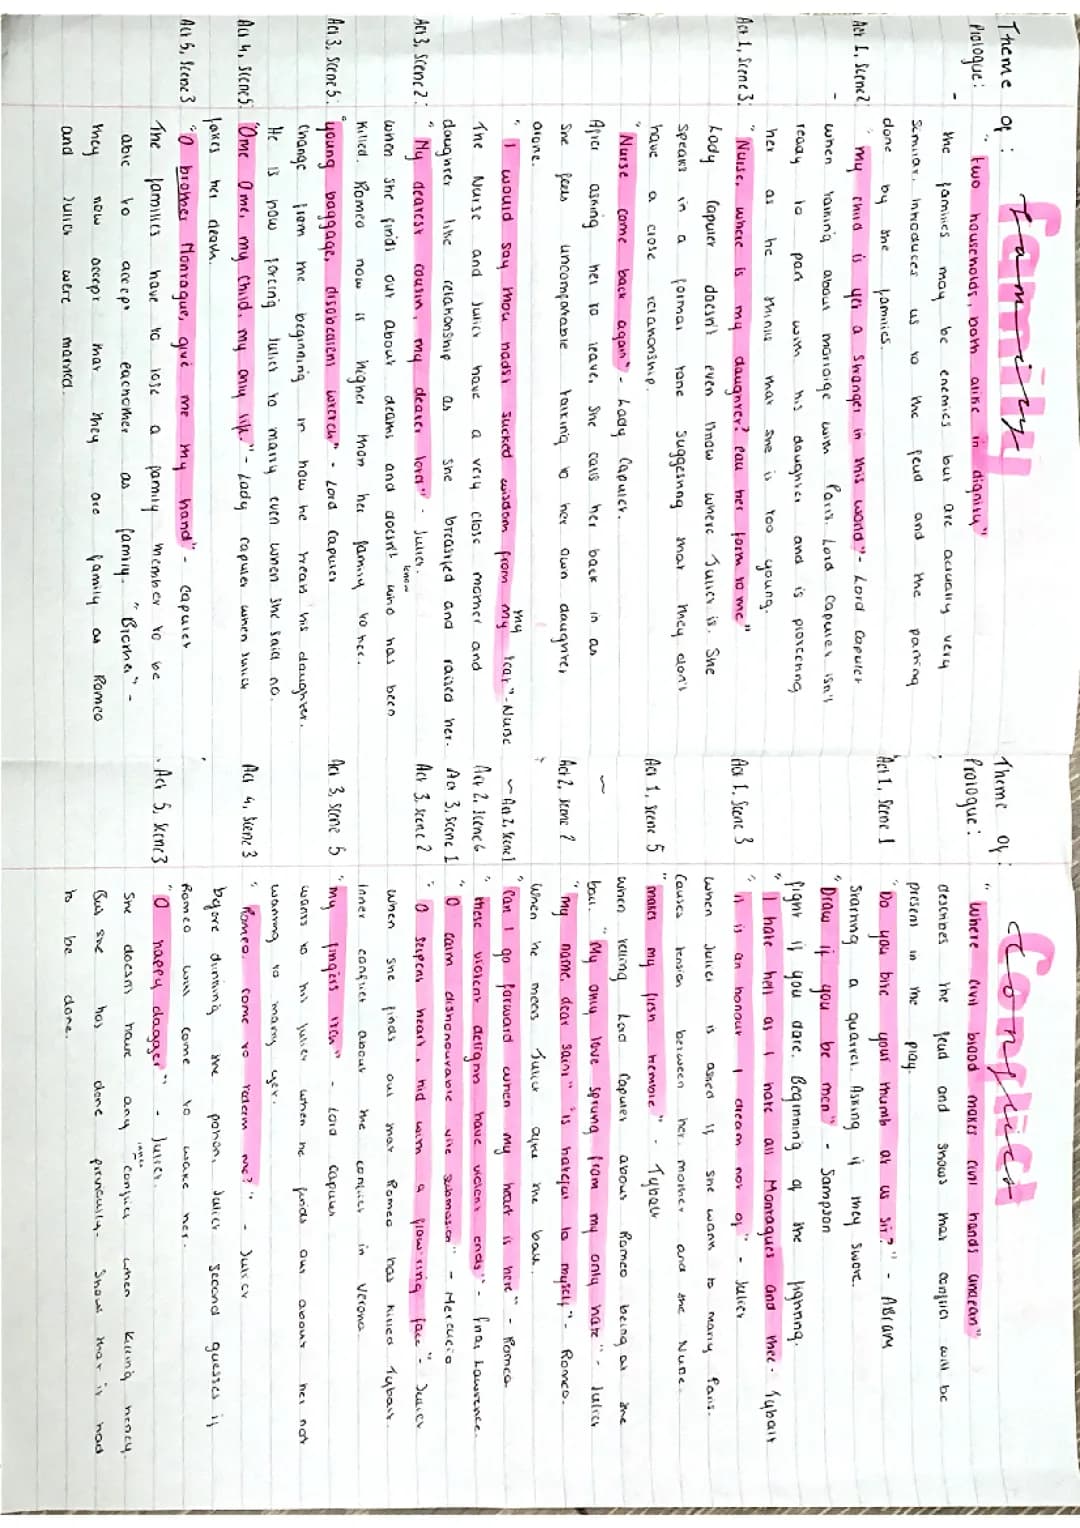 Theme of: Family
Prologue: "two households, both alike in dignity"
- the families may be enemies but are actually very
similar. Introduces us to the feud and the parting
done by the families.
Act 1, Scene 2: "my child is yet a stranger in this world" - Lord Capulet
- When talking about marriage with Paris. Lord Capulet isn't
ready to part with his daughter and is protecting
her as he thinks that she is too young.
Act 1, Scene 3: "Nurse, where is my daughter? Call her form to me"
Lady Capulet doesn't even know where Juliet is. She
speaks in a formal tone suggesting that they don't
have a close relationship.
"Nurse come back again" - Lady Capulet.
After asking her to leave, she calls her back in as
she feels uncomfortable talking to her own daughter,
alone.
"I would say thou hadst sucked wisdom from my my teat" - Nurse
The Nurse and Juliet have a very close mother and
daughter like relationship as she breasted and raised her.
Act 3, Scene 2: "My dearest cousin, my dearer lord" - Juliet.
When she finds out about deaths and doesn't know who has been
killed. Romeo now is higher than her family to her.
Act 3, Scene 5: "young baggage, disobedient wretch" - Lord Capulet
Change from the beginning in how he treats his daughter.
He is now forcing Juliet to marry even when she said no.
Act 4, Scene 5: "O me O me, my child, my only life." - Lady Capulet when Juliet
fakes her death.
Act 5, Scene 3 "O brother Montague, give me thy hand" - Capulet
The families have to lose a family member to be
able to accept eachother as family. "Brother" -
they now accept that they are family as Romeo
and Juliet were married.
Theme of: Conflict
Prologue: "Where civil blood makes civil hands unclean"
describes the feud and shows that conflict will be
present in the play.
Act 1, Scene 1 "Do you bite your thumb at us sir?" - Abram
Starting a quarrel. Asking if they swore.
"Draw if you be men" - Sampson
fight if you dare. Beginning of the fighting.
"I hate hell as I hate all Montagues and thee - Tybalt
Act 1, Scene 3 "it is an honour I dream not of" - Juliet
When Juliet is asked if she want to marry Paris.
Causes tension between her mother and the Nurse.
Act 1, Scene 5 "makes my flesh tremble" - Tybalt
When telling Lord Capulet about Romeo being at the
~ ball. "My only love sprung from my only hate" - Juliet
Act 2, Scene 2 "My name, dear saint" is hateful to myself" - Romeo.
When he meets Juliet after the ball.
~ Act 2, Scene 1 "Can I go forward when my heart is here" - Romeo
Act 2, Scene 6 "these violent delights have violent ends" - Friar Lawrence.
Act 3, Scene 1 "O calm dishonourable vile submission" - Mercutio
Act 3, Scene 2 "O serpent heart, hid with a flow'ring face" - Juliet
When she finds out that Romeo has killed Tybalt.
Inner conflict about the conflict in Verona
Act 3, Scene 5 "my fingers itch" - Lord Capulet
wants to hit Juliet when he finds out about her not
wanting to marry yet.
Act 4, Scene 3 "Romeo, come to redeem me?" - Juliet
before drinking the potion, Juliet second guesses if
Romeo will come to wake her.
Act 5, Scene 3 "O happy dagger" - Juliet.
She doesn't have any inner conflict when killing
But she has done previously - Shows that it had
to be done.